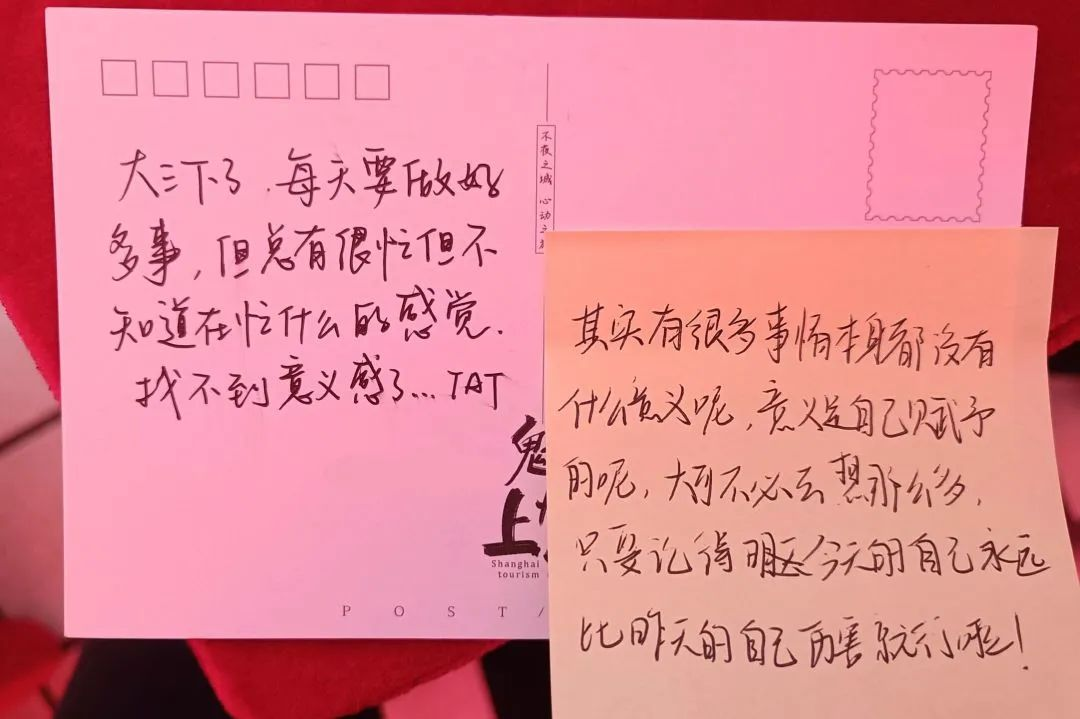 大三下了，每天要做好
多事，但总有很忙但不
知道在忙什么的感觉.
找不到意义感了...TAT
不夜之城 心动之
上
Shanghai
tourism
POST/
其实有很多事情本身都没有
什么意义呢，意义是自己赋予
的呢，大可不必去想那么多，
只要记得 今天的自己永远
比昨天的自己厉害就行啦！